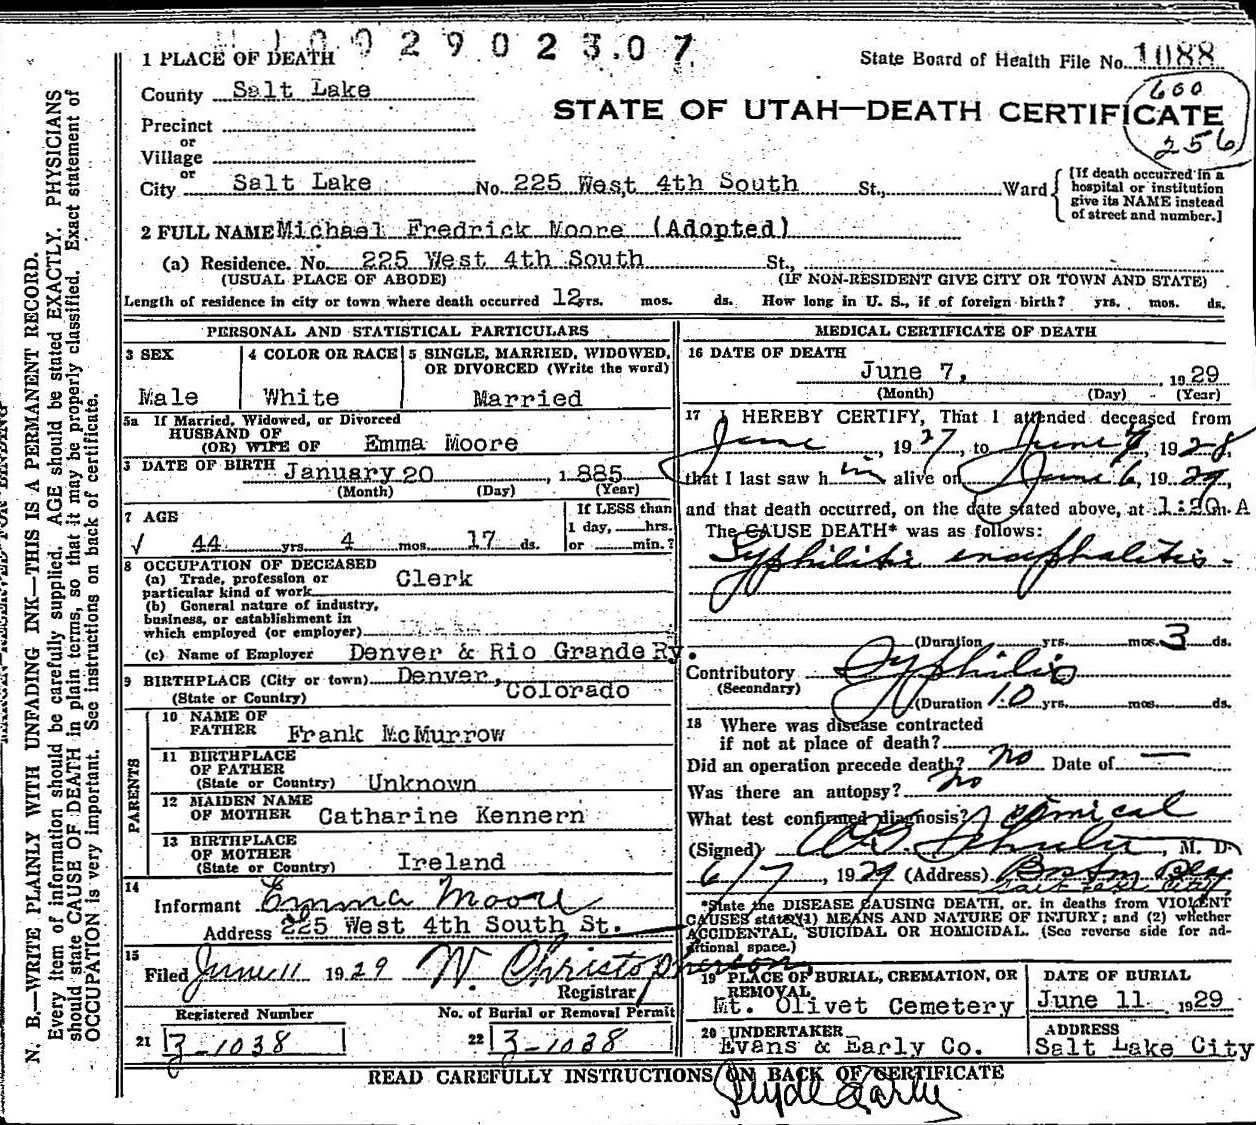 1002902307
1 PLACE OF DEATH
State Board of Health File No. 1088
County Salt Lake
600
256
STATE OF UTAH—DEATH CERTIFICATE
Precinct
or
Village
or
City Salt Lake No. 225 West 4th South St., Ward
[If death occurred in a hospital or institution give its NAME instead of street and number.]
2 FULL NAME Michael Fredrick Moore (Adopted)
(a) Residence. No. 225 West 4th South St.,
(USUAL PLACE OF ABODE) (IF NON-RESIDENT GIVE CITY OR TOWN AND STATE)
Length of residence in city or town where death occurred 12 yrs. mos. ds. How long in U. S., if of foreign birth? yrs. mos. ds.
PERSONAL AND STATISTICAL PARTICULARS
3 SEX
Male
4 COLOR OR RACE
White
5 SINGLE, MARRIED, WIDOWED,
OR DIVORCED (Write the word)
Married
5a If Married, Widowed, or Divorced
HUSBAND OF
(OR) WIFE OF Emma Moore
DATE OF BIRTH January 20, 1885
(Month) (Day) (Year)
7 AGE
√ 44 yrs. 4 mos. 17 ds.
If LESS than
1 day, hrs.
or min.?
8 OCCUPATION OF DECEASED
(a) Trade, profession or
particular kind of work Clerk
(b) General nature of industry,
business, or establishment in
which employed (or employer)
(c) Name of Employer Denver & Rio Grande Ry.
9 BIRTHPLACE (City or town) Denver,
(State or Country) Colorado
PARENTS
10 NAME OF
FATHER Frank McMurrow
11 BIRTHPLACE
OF FATHER
(State or Country) Unknown
12 MAIDEN NAME
OF MOTHER Catharine Kennern
13 BIRTHPLACE
OF MOTHER
(State or Country) Ireland
14
Informant Emma Moore
Address 225 West 4th South St.
15
Filed June 11 1929 W. Christopherson
Registrar
Registered Number
21 3-1038
No. of Burial or Removal Permit
22 3-1038
MEDICAL CERTIFICATE OF DEATH
16 DATE OF DEATH
June 7, 1929
(Month) (Day) (Year)
17 I HEREBY CERTIFY, That I attended deceased from
June, 1927, to June 7 1928,
that I last saw him alive on June 6, 1929,
and that death occurred, on the date stated above, at 1:20 m. A
The CAUSE DEATH* was as follows:
Syphilitic encephalitis
(Duration yrs. mos. 3 ds.
Contributory Syphilis
(Secondary)
(Duration 10 yrs. mos. ds.
18 Where was disease contracted
if not at place of death?
Did an operation precede death? no Date of —
Was there an autopsy? no
What test confirmed diagnosis? Clinical
(Signed) , M. D.
6/7, 1929 (Address) Boston Bldg
Salt Lake City
*State the DISEASE CAUSING DEATH, or, in deaths from VIOLENT
CAUSES state (1) MEANS AND NATURE OF INJURY; and (2) whether
ACCIDENTAL, SUICIDAL OR HOMICIDAL. (See reverse side for ad-
ditional space.)
19 PLACE OF BURIAL, CREMATION, OR
REMOVAL
Mt. Olivet Cemetery
DATE OF BURIAL
June 11 1929
20 UNDERTAKER
Evans & Early Co.
ADDRESS
Salt Lake City
READ CAREFULLY INSTRUCTIONS ON BACK OF CERTIFICATE
Clyde Early
N. B.—WRITE PLAINLY WITH UNFADING INK—THIS IS A PERMANENT RECORD.
Every item of information should be carefully supplied. AGE should be stated EXACTLY. PHYSICIANS
should state CAUSE OF DEATH in plain terms, so that it may be properly classified. Exact statement of
OCCUPATION is very important. See instructions on back of certificate.